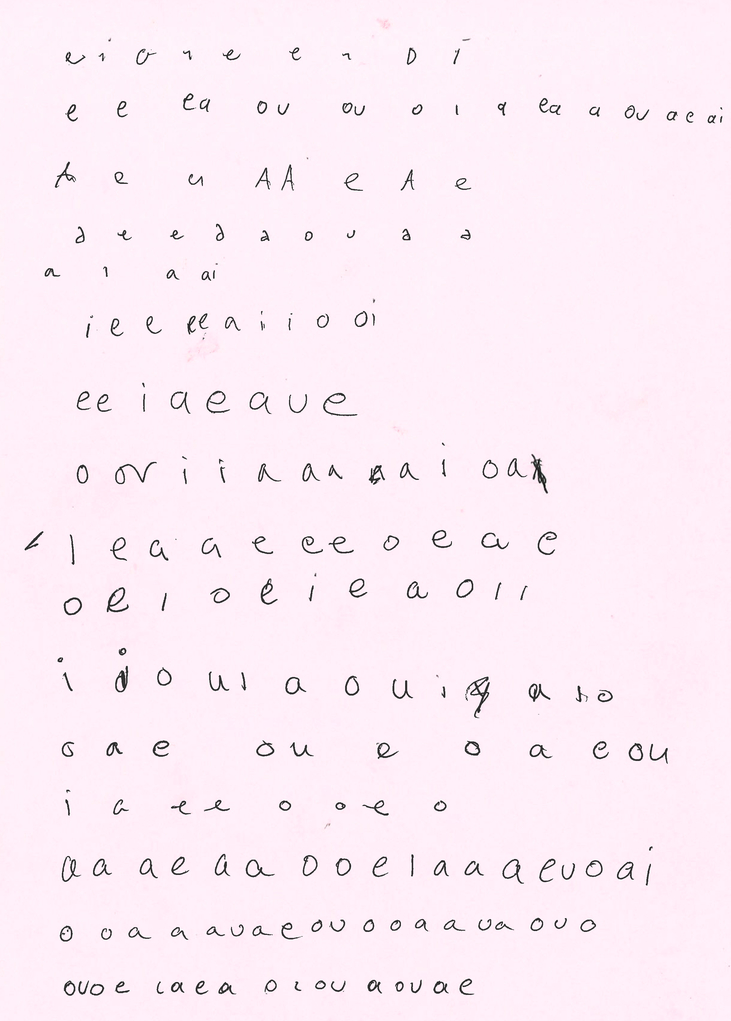 e i o n e e n D I
e e ea ou ou o i a ea a ou a e ai
A e u AA e A e
a e e a a o u a a
a i a ai
i e e ee a i i o oi
ee i a e a u e
o ov i i a aa a a i oa
l e a a e ee o e a e
o e i o e i e a o i i
i i o ui a o u i a i o
o a e ou e o a e ou
i a e e o o e o
a a a e a a o o e l a a a e u o a i
o o a a a u a e o u o o a a u a o u o
ouo e iaea o i ou a ou a e